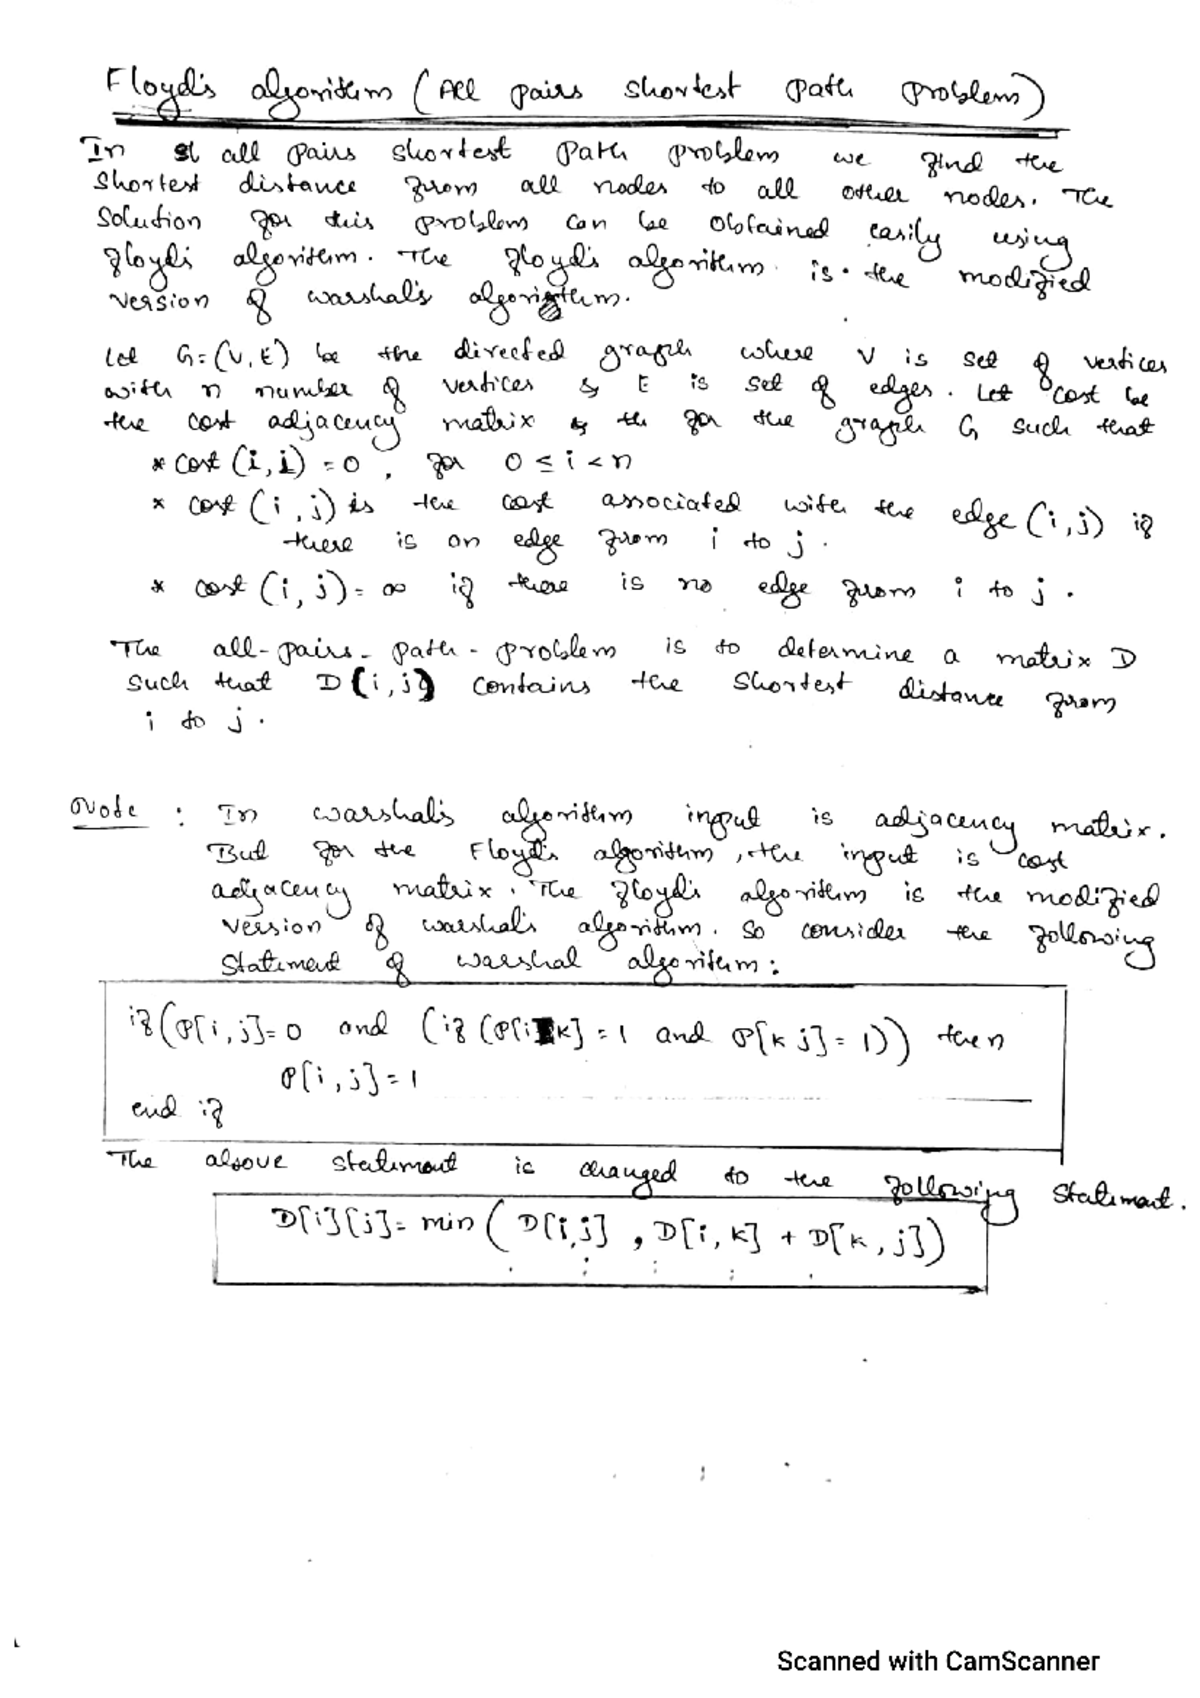 Floyd's algorithm (All pairs shortest path problem)
In all pairs shortest path problem we find the
shortest distance from all nodes to all other nodes. The
solution for this problem can be obtained easily using
floyd's algorithm. The floyd's algorithm is the modified
version of warshal's algorithm.
Let G=(V,E) be the directed graph where V is set of vertices
with n number of vertices & E is set of edges. Let cost be
the cost adjacency matrix for the graph G such that
* cost (i,i) = 0, for 0 ≤ i < n
* cost (i,j) is the cost associated with the edge (i,j) if
there is an edge from i to j.
* cost (i,j) = ∞ if there is no edge from i to j.
The all-pairs-path-problem is to determine a matrix D
such that D(i,j) contains the shortest distance from
i to j.
Note : In warshal's algorithm input is adjacency matrix.
But for the Floyd's algorithm, the input is cost
adjacency matrix. The floyd's algorithm is the modified
version of warshal's algorithm. So consider the following
statement of warshal algorithm:
if (P[i,j]=0 and (if (P[i k] = 1 and P[k j] = 1)) then
P[i,j]=1
end if
The above statement is changed to the following statement.
D[i][j]= min ( D[i,j] , D[i,k] + D[k,j])
Scanned with CamScanner